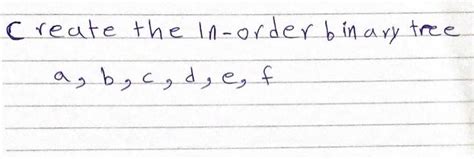 Create the In-order binary tree
a, b, c, d, e, f